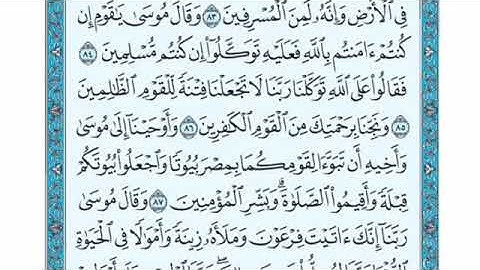 فِى ٱلْأَرْضِ وَإِنَّهُۥ لَمِنَ ٱلْمُسْرِفِينَ ٨٣ وَقَالَ مُوسَىٰ يَـٰقَوْمِ إِن
كُنتُمْ ءَامَنتُم بِٱللَّهِ فَعَلَيْهِ تَوَكَّلُوٓا۟ إِن كُنتُم مُّسْلِمِينَ ٨٤
فَقَالُوا۟ عَلَى ٱللَّهِ تَوَكَّلْنَا رَبَّنَا لَا تَجْعَلْنَا فِتْنَةً لِّلْقَوْمِ ٱلظَّـٰلِمِينَ
٨٥ وَنَجِّنَا بِرَحْمَتِكَ مِنَ ٱلْقَوْمِ ٱلْكَـٰفِرِينَ ٨٦ وَأَوْحَيْنَآ إِلَىٰ مُوسَىٰ
وَأَخِيهِ أَن تَبَوَّءَا لِقَوْمِكُمَا بِمِصْرَ بُيُوتًا وَٱجْعَلُوا۟ بُيُوتَكُمْ
قِبْلَةً وَأَقِيمُوا۟ ٱلصَّلَوٰةَ ۗ وَبَشِّرِ ٱلْمُؤْمِنِينَ ٨٧ وَقَالَ مُوسَىٰ
رَبَّنَآ إِنَّكَ ءَاتَيْتَ فِرْعَوْنَ وَمَلَأَهُۥ زِينَةً وَأَمْوَٰلًا فِى ٱلْحَيَوٰةِ